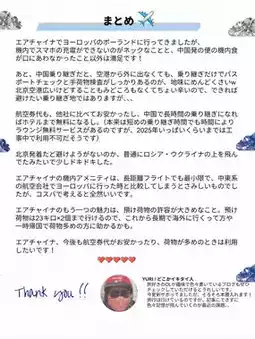 まとめ ✈️
エアチャイナでヨーロッパのポーランドに行ってきましたが、
機内でスマホの充電ができないのがネックなことと、中国発の便の機内食
が口にあわなかったこと以外は満足です！
あと、中国乗り継ぎだと、空港から外に出なくても、乗り継ぎだけでパス
ポートチェックと手荷物検査がしっかりあるのが、地味にめんどくさいw
北京空港広いけどすることもみどころもなくてちょい辛いので、できれば
避けたい乗り継ぎ地ではありますが、、、
航空券代も、他社に比べてお安かったし、中国で長時間の乗り継ぎになれ
ばホテルまで無料になるし、（本来は短めの乗り継ぎ時間でも時間により
ラウンジ無料サービスがあるのですが、2025年いっぱいくらいまでは工
事中で利用不可だそうです）
北京発着だと避けようがないのか、普通にロシア・ウクライナの上を飛ん
でたみたいで少しドキドキした。
エアチャイナの機内アメニティは、長距離フライトでも最小限で、中東系
の航空会社でヨーロッパに行った時と比較してしまうとさみしいものでし
たが、コスパで考えると全然いいです。
エアチャイナのもう一つの魅力は、預け荷物の許容が大きめなこと。預け
荷物は23キロ×2個まで行けるので、これから長期で海外に行くって方や
一時帰国で荷物多めの方に助かるかも。
エアチャイナ、今後も航空券代がお安かったり、荷物が多めのときは利用
したいです！
❤️❤️❤️❤️❤️
Thank you!!
YURI / どこかイキタイ人